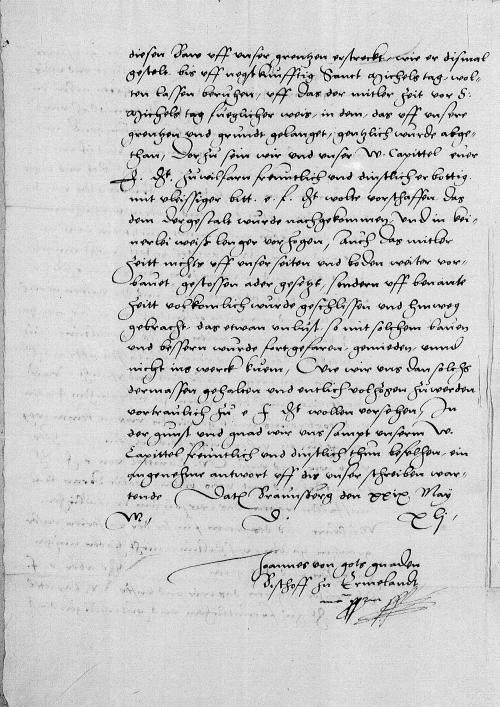 diesen Baw uff unser grentzen erstreckt, wie er dismal
gestelt, bis uff negstkunfftig Sanct Michels tag, wol-
ten lassen beruhen, uff das der mitler zeit vor S.
Michels tag fueglicher weis, in dem, das uff unsere
grentzen und grundt gelanget, gentzlich wurde abge-
than, Dorzu sein wir und unser W. Capittel euer
f. Dt. zuwilfarn freuntlich und dinstlicher bottig
mit vleissiger bitt e. f. Dt wolte vorschaffen das
dem dergestalt wurde nachgekommen, Und in kei-
nerlei weise lenger vorzogen, Auch das mitler
zeitt nichts uff unser seiten und boden weiter vor-
bauet gestossen ader gesetzt, sondern uff benante
zeitt volkomlich wurde geschlissen und hinweg
gebracht, das etwan unlust, so mit solchem bauen
und bessern wurde fortgefaren, gemieden, unnd
nicht ins werck kwem, Wie wir uns dan solchs
dermassen gehalten und entlich volzogen zuwerden
vortraulich zu e f Dt wollen vorsehen, In
der gunst und gnad wir uns sampt unserm W.
Capittel freuntlich und dinstlich thun befelhen, ein
angenehme antwort uff dis unser schreiben war-
tende Datum Braunsberg den xxix May
M. D. Xlj.
Joannes von gots gnaden
Bischoff zu Ermelandt